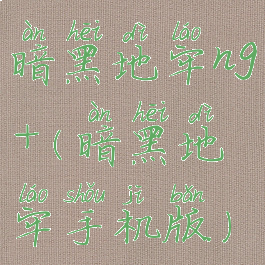 àn hēi dì láo
暗黑地牢ng
àn hēi dì
+(暗黑地
láo shǒu jī bǎn
牢手机版)